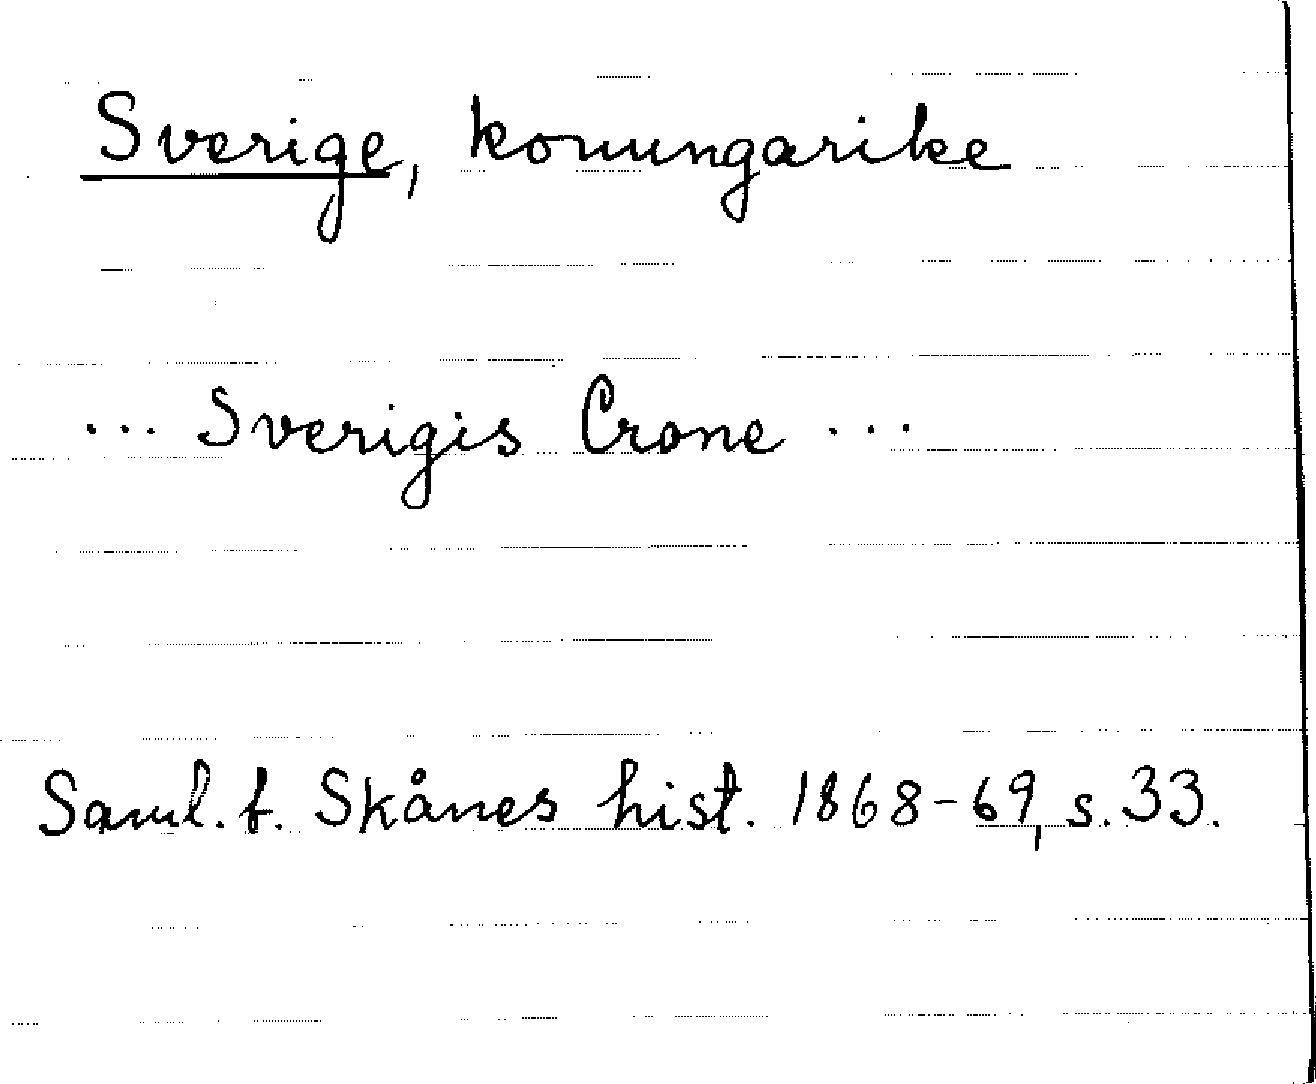 Sverige, konungarike
... Sverigis Crone ...
Saml. f. Skånes hist. 1868-69, s. 33.